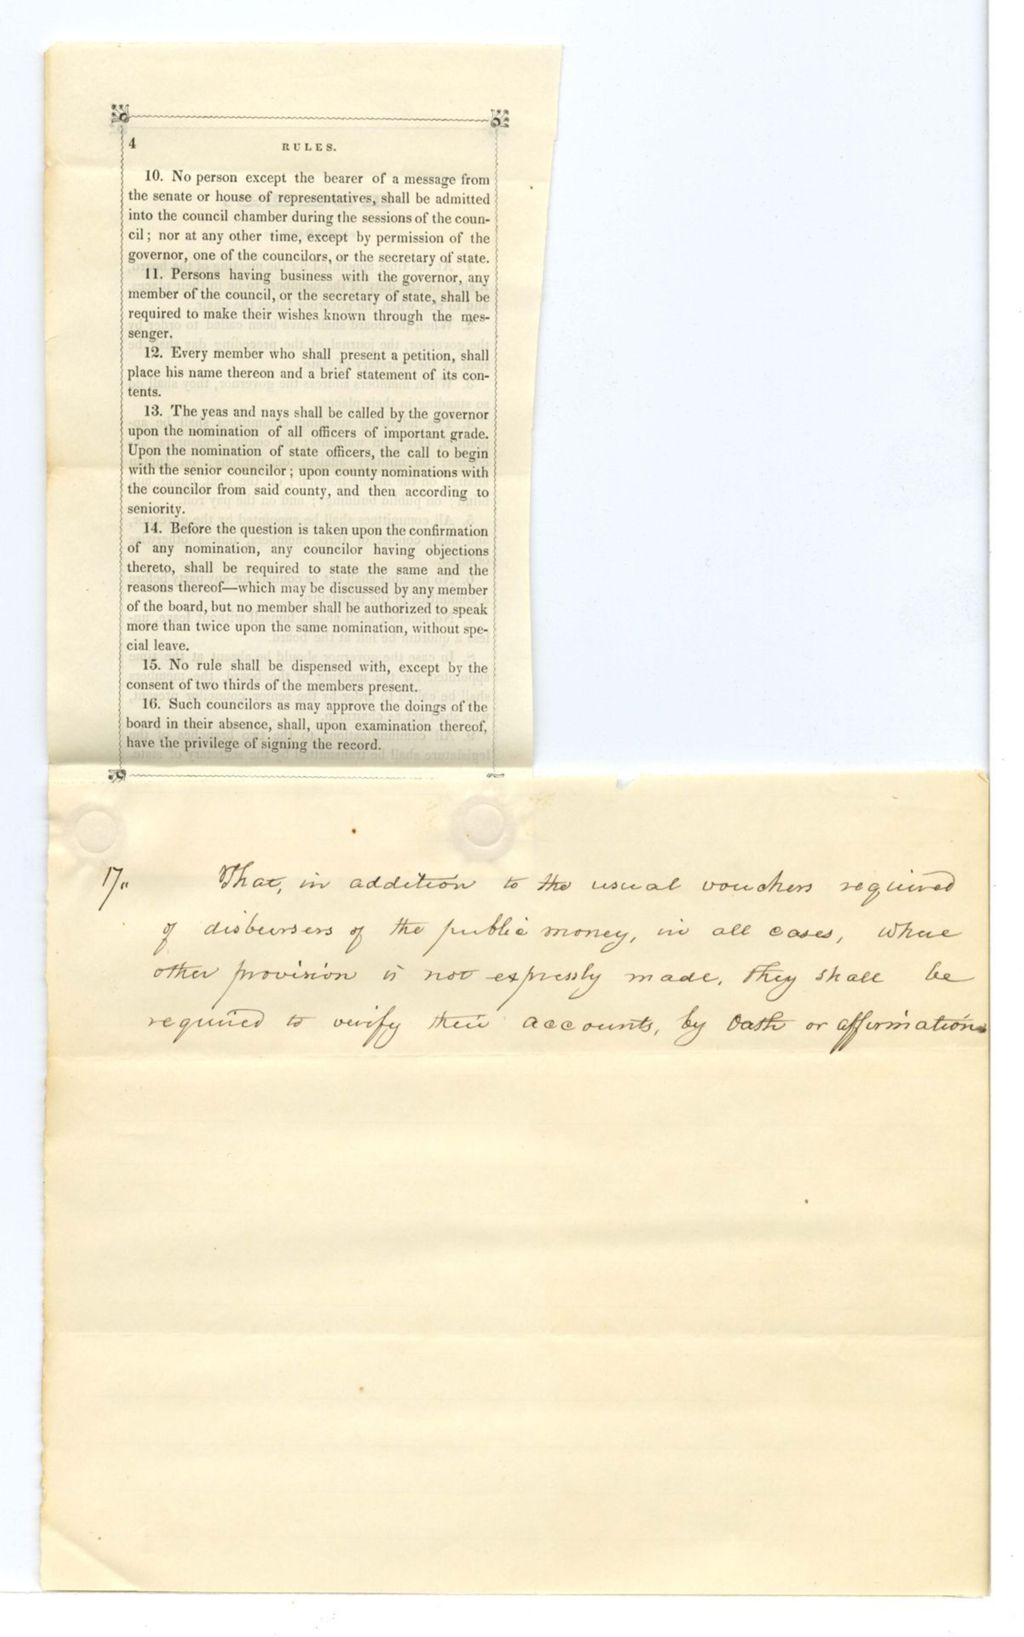 4 RULES.
10. No person except the bearer of a message from
the senate or house of representatives, shall be admitted
into the council chamber during the sessions of the coun-
cil; nor at any other time, except by permission of the
governor, one of the councilors, or the secretary of state.
11. Persons having business with the governor, any
member of the council, or the secretary of state, shall be
required to make their wishes known through the mes-
senger.
12. Every member who shall present a petition, shall
place his name thereon and a brief statement of its con-
tents.
13. The yeas and nays shall be called by the governor
upon the nomination of all officers of important grade.
Upon the nomination of state officers, the call to begin
with the senior councilor; upon county nominations with
the councilor from said county, and then according to
seniority.
14. Before the question is taken upon the confirmation
of any nomination, any councilor having objections
thereto, shall be required to state the same and the
reasons thereof—which may be discussed by any member
of the board, but no member shall be authorized to speak
more than twice upon the same nomination, without spe-
cial leave.
15. No rule shall be dispensed with, except by the
consent of two thirds of the members present.
16. Such councilors as may approve the doings of the
board in their absence, shall, upon examination thereof,
have the privilege of signing the record.
17. That, in addition to the usual vouchers required
of disbursers of the public money, in all cases, where
other provision is not expressly made, they shall be
required to verify their accounts, by Oath or affirmation